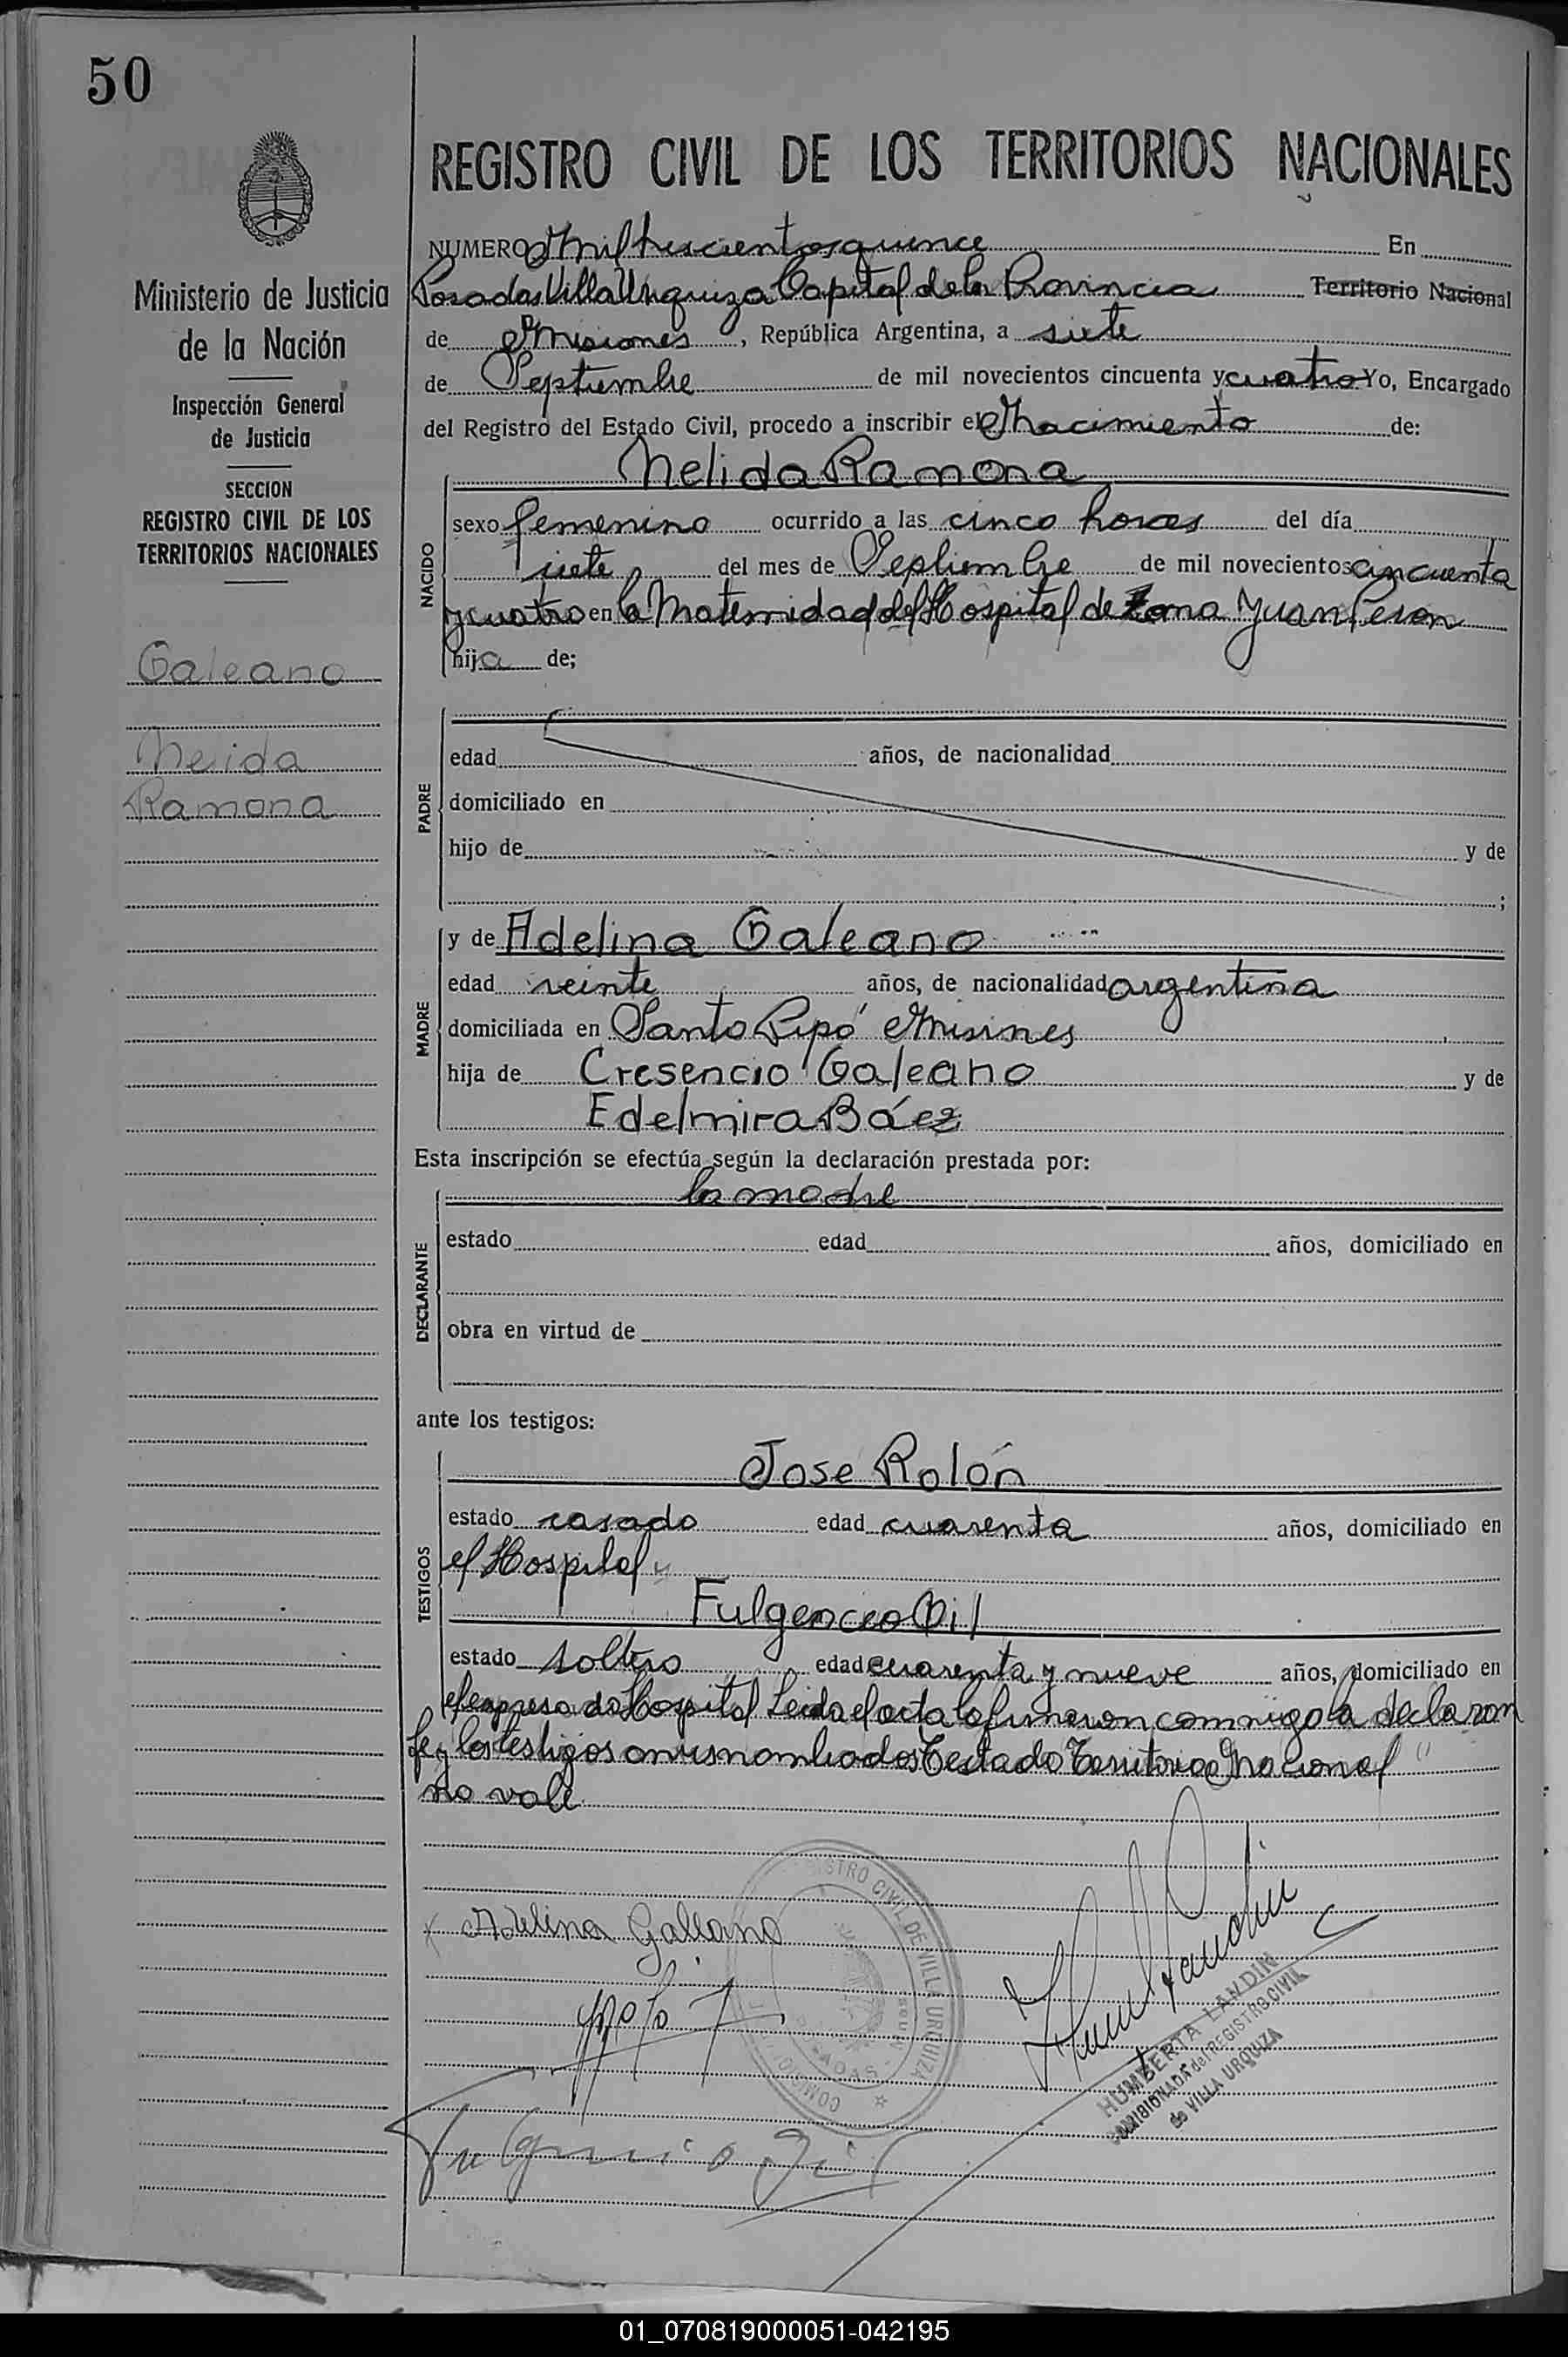 50
REGISTRO CIVIL DE LOS TERRITORIOS NACIONALES
Ministerio de Justicia
de la Nación
Inspección General
de Justicia
SECCION
REGISTRO CIVIL DE LOS
TERRITORIOS NACIONALES
Galeano
Neida
Ramona
NUMERO Mil trescientos quince En
Posadas Villa Urquiza Capital de la Provincia Territorio Nacional
de Misiones, República Argentina, a siete
de Septiembre de mil novecientos cincuenta y cuatro Yo, Encargado
del Registro del Estado Civil, procedo a inscribir el Nacimiento de:
NACIDO
Nelida Ramona
sexo femenino ocurrido a las cinco horas del día
siete del mes de Septiembre de mil novecientos cincuenta
y cuatro en la Maternidad del Hospital de Zona Juan Peron
hija de;
PADRE
edad años, de nacionalidad
domiciliado en
hijo de y de
;
MADRE
y de Adelina Galeano
edad veinte años, de nacionalidad argentina
domiciliada en Santo Pipó Misines
hija de Cresencio Galeano y de
Edelmira Báez
Esta inscripción se efectúa según la declaración prestada por:
DECLARANTE
la madre
estado edad años, domiciliado en
obra en virtud de
ante los testigos:
TESTIGOS
Jose Rolón
estado casado edad cuarenta años, domiciliado en
el Hospital y
Fulgencio Gil
estado soltero edad cuarenta y nueve años, domiciliado en
el expresado Hospital Leida el acta la firmaron conmigo la declaran
te y los testigos nombrados Testado Territorio Nacional
no vale
x Adelina Galeano
REGISTRO CIVIL DE VILLA URQUIZA
POSADAS
Fulgencio Gil
HUMBERTA LANDIN
COMISIONADA del REGISTRO CIVIL
de VILLA URQUIZA
01_070819000051-042195